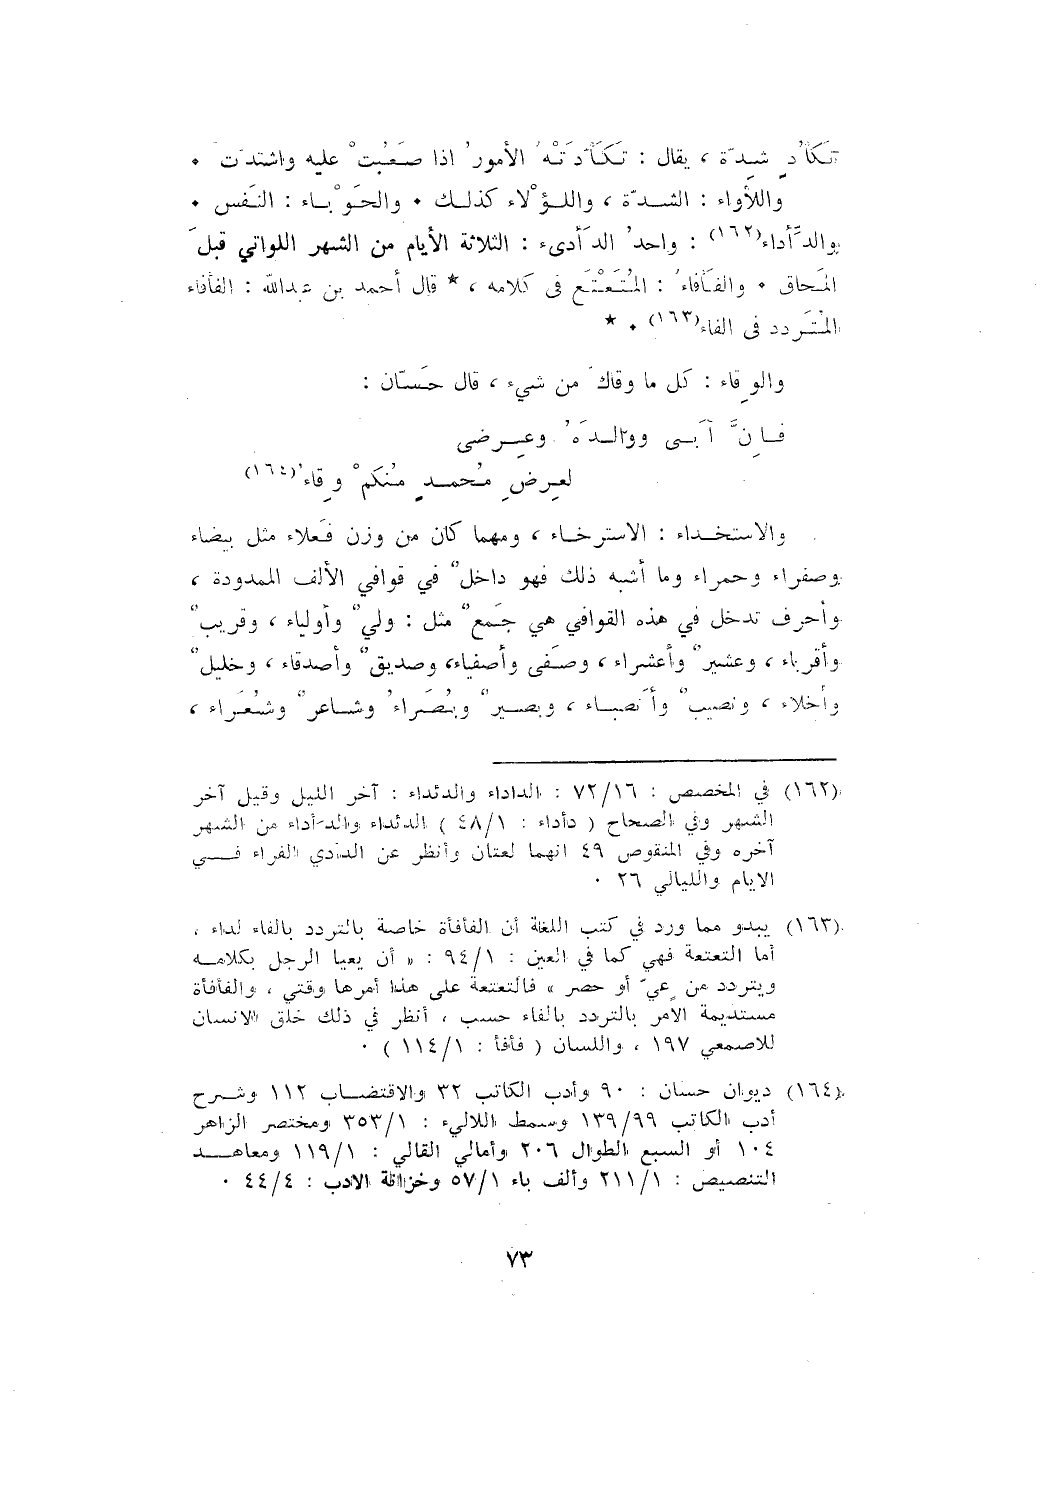 تَكَأُدِ شِدّة ، يقال : تَكَأَّدَتْهُ الأمورُ اذا صَعُبتْ عليه واشتدّت •
واللأواء : الشدّة ، واللؤْلاء كذلك • والحَوْباء : النَفس •
والدَّأداء(١٦٢) : واحدُ الدَآدىء : الثلاثة الأيام من الشهر اللواتي قبلَ
المَحاق • والفَأفاءُ : المُتَعْتَع فى كلامه ، * قال أحمد بن عبدالله : الفأفاء
المُتَردد فى الفاء(١٦٣) • *
والوِقاء : كل ما وقاكَ من شيء ، قال حَسّان :
فان َّ آبى ووالدَهُ وعِرضى
لعِرضِ مُحمدٍ مُنكمْ وِقاءُ(١٦٤)
والاستخذاء : الاسترخاء ، ومهما كان من وزن فَعلاء مثل بيضاء
وصفراء وحمراء وما أشبه ذلك فهو داخلٌ في قوافي الألف الممدودة ،
وأحرف تدخل في هذه القوافي هي جَمعٌ مثل : وليٌ وأولياء ، وقريبٌ
وأقرباء ، وعشيرٌ وأعشراء ، وصَفى وأصفياء، وصديقٌ وأصدقاء ، وخليلٌ
وأخلاء ، ونصيبٌ وأَنصباء ، وبصيرٌ وبُصَراءُ وشاعرٌ وشُعَراء ،
(١٦٢) في المخصص : ٧٢/١٦ : الداداء والدئداء : آخر الليل وقيل آخر
الشهر وفي الصحاح ( دأداء : ٤٨/١ ) الدئداء والدأداء من الشهر
آخره وفي المنقوص ٤٩ انهما لغتان وأنظر عن الدآدي الفراء فـــي
الايام والليالي ٢٦ •
(١٦٣) يبدو مما ورد في كتب اللغة أن الفأفأة خاصة بالتردد بالفاء لداء ،
أما التعتعة فهي كما في العين : ٩٤/١ : « أن يعيا الرجل بكلامــه
ويتردد من عِيّ أو حصر » فالتعتعة على هذا أمرها وقتي ، والفأفأة
مستديمة الأمر بالتردد بالفاء حسب ، أنظر في ذلك خلق الانسان
للاصمعي ١٩٧ ، واللسان ( فأفأ : ١١٤/١ ) •
(١٦٤) ديوان حسان : ٩٠ وأدب الكاتب ٣٢ والاقتضـاب ١١٢ وشـرح
أدب الكاتب ١٣٩/٩٩ وسمط اللاليء : ٣٥٣/١ ومختصر الزاهر
١٠٤ أو السبع الطوال ٢٠٦ وأمالي القالي : ١١٩/١ ومعاهـــد
التنصيص : ٢١١/١ وألف باء ٥٧/١ وخزانة الادب : ٤٤/٤ •
٧٣